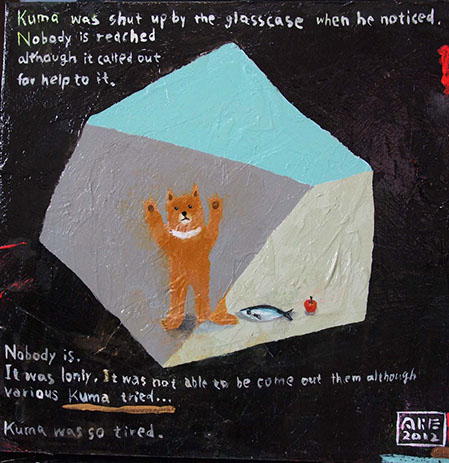 Kuma was shut up by the glasscase when he noticed.
Nobody is reached
although it called out
for help to it.
Nobody is.
It was lonly. It was not able to be come out them although
various Kuma tried...
Kuma was so tired.
AKE
2012